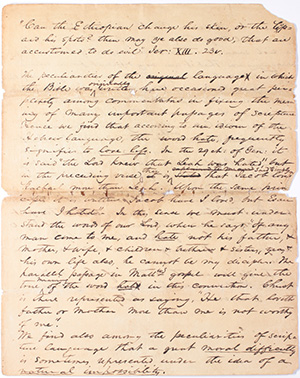 "Can the Ethiopian change his skin, or the leop-
ard his spots? then may ye also do good, that are
accustomed to do evil" Jer: XIII. 23v.
The peculiarities of the original language in which
the Bible was written have occasioned great per-
plexity among commentators in fixing the mean-
ing of many important passages of Scripture
Hence we find that according to an idiom of the
language, the word hate, frequently
signifies to love less. In the 29ch of Gen. it
is said the Lord knew that Leah was hated, but
in the preceding verse
Rachel more than Leah. Upon the same prin-
Jacob have I loved, but Esau
have I hated. In the sense we must under-
stand the words of our Lord, when he says If any
man come to me, and hate not his father &
mother, & wife, & children, & brethren & sisters, yea &
his own life also, he cannot be my disciple. The
parallel passage in Matt's gospel will give the
of the word hate in this connection. Christ
is there represented as saying, He that loveth
father or Mother more than me is not worthy
of me.
We find also among the peculiarities of scrip-
ture language that a great moral difficulty
is sometimes represented under the idea of a
natural impossibility.